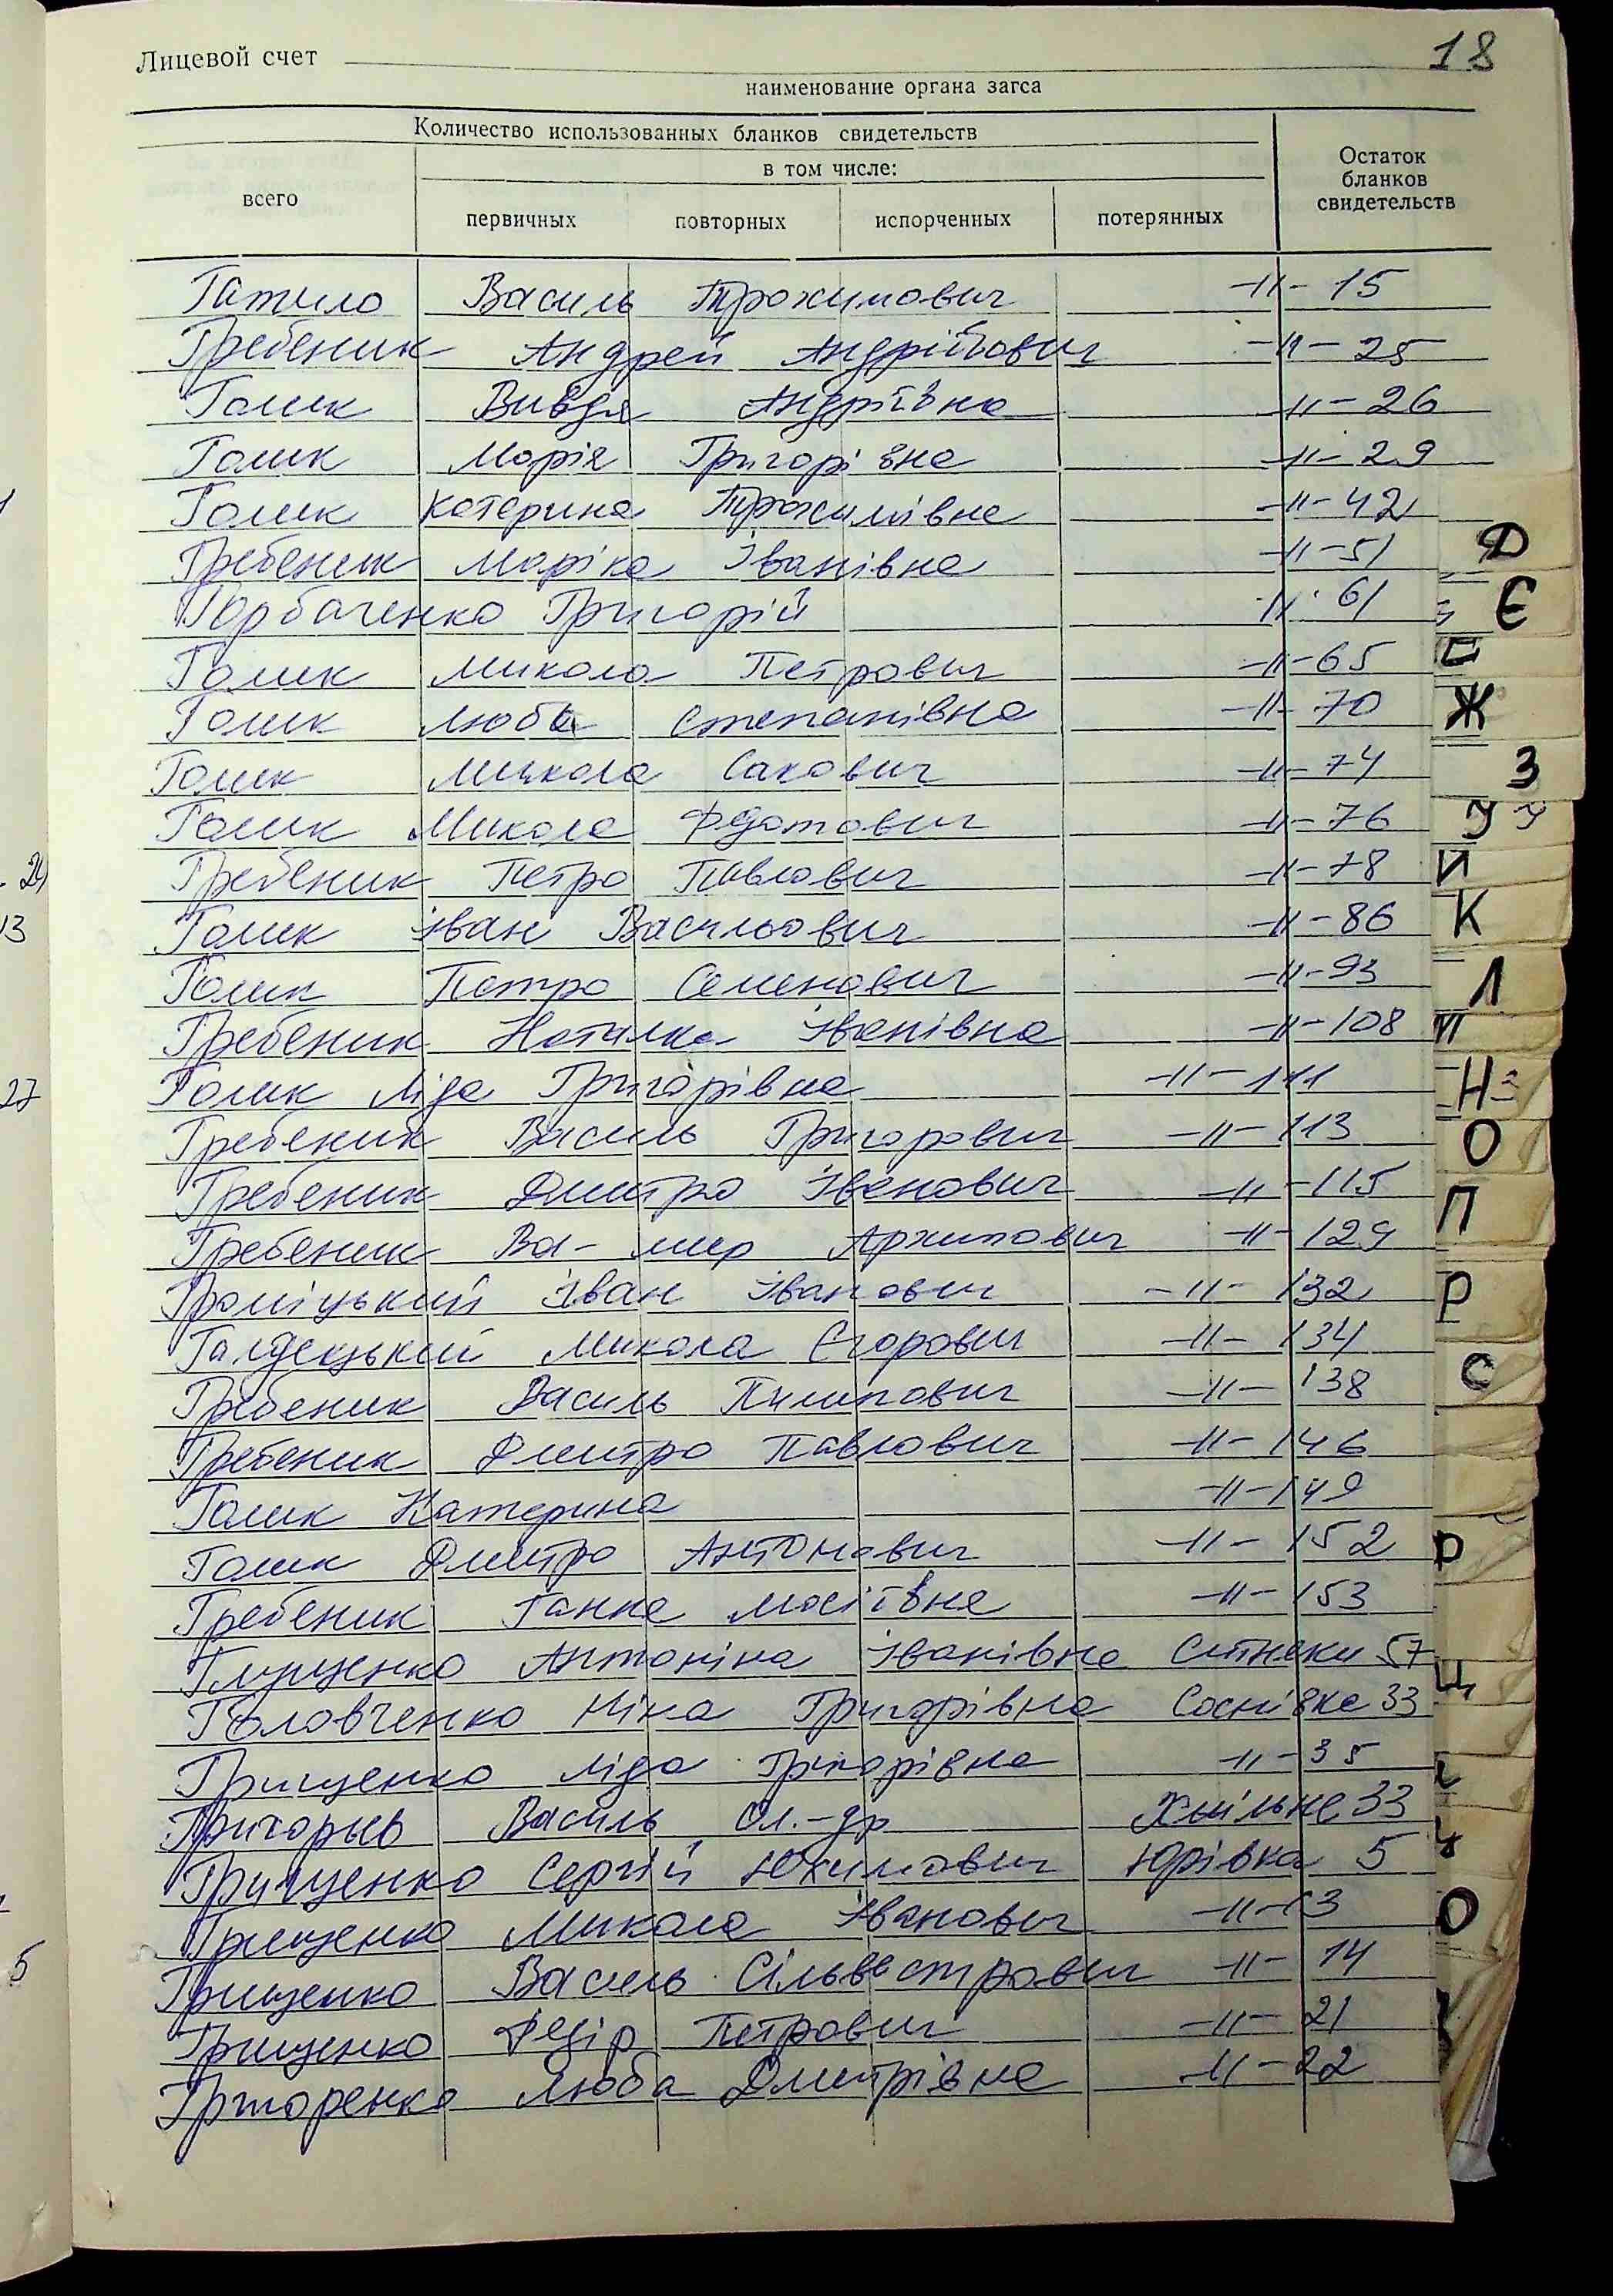 18
Лицевой счет
наименование органа загса
Количество использованных бланков свидетельств
в том числе:
Остаток бланков свидетельств
всего первичных повторных испорченных потерянных
Гатило Василь Трохимович -"- 15
Гребеник Андрей Андрійович -"- 25
Голик Вивдя Андріївна -"- 26
Голик Марія Григорівна -"- 29
Голик Катерина Трохимівна -"- 42
Гребеник Маріка Іванівна -"- 51
Горбаченко Григорій -"- 61
Голик Микола Петрович -"- 65
Голик Люба Степанівна -"- 70
Голик Микола Сакович -"- 74
Голик Микола Федотович -"- 76
Гребеник Петро Павлович -"- 78
Голик Іван Васильович -"- 86
Голик Петро Семенович -"- 93
Гребеник Наталка Іванівна -"- 108
Голик Ліда Григорівна -"- 111
Гребеник Василь Григорович -"- 113
Гребеник Дмитро Іванович -"- 115
Гребеник Во-мир Архипович -"- 129
Іван Іванович -"- 132
Микола Єгорович -"- 134
Гребеник Василь Пилипович -"- 138
Гребеник Дмитро Павлович -"- 146
Голик Катерина -"- 149
Голик Дмитро Антонович -"- 152
Гребеник Ганна Мосіївна -"- 153
Антоніна Іванівна 57
Головченко Ніна Григорівна Соснівка 33
Грищенко Ліда Григорівна -"- 35
Василь Ол.-др Хмільне 33
Грищенко Сергій Юхимович Юрівка 5
Грищенко Микола Іванович -"- 13
Грищенко Василь Сільвестрович -"- 14
Грищенко Федір Петрович -"- 21
Григоренко Люба Дмитрівна -"- 22
Д
Є
Ж
З
У
И
К
Л
М
Н
О
П
Р
С
Ц
О